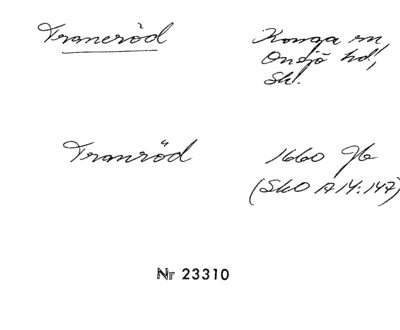 Traneröd Konga sn,
Onsjö hd,
Sk.
Tranröd 1660 Jb
(SkO A14:147)
Nr 23310